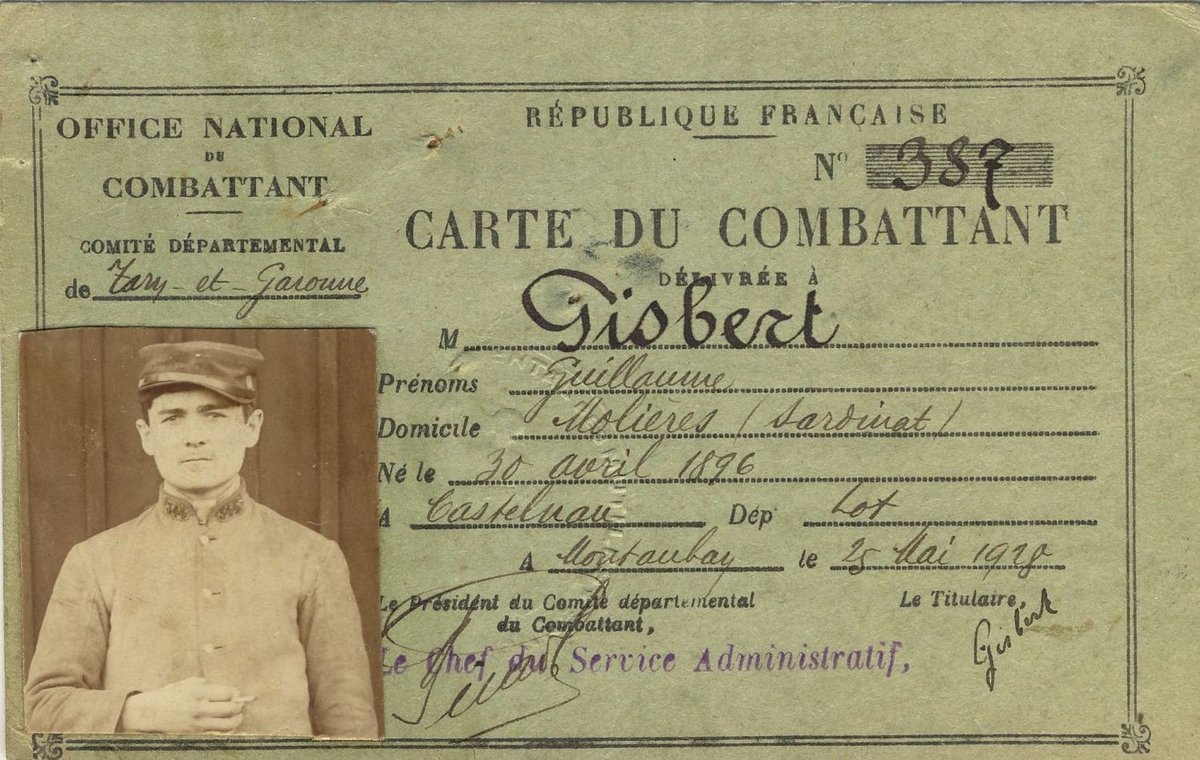 OFFICE NATIONAL
DU
COMBATTANT
COMITÉ DÉPARTEMENTAL
de Tarn-et-Garonne
RÉPUBLIQUE FRANÇAISE
N° 387
CARTE DU COMBATTANT
DÉLIVRÉE À
M Gisbert
Prénoms Guillaume
Domicile Molières (Sardinat)
Né le 30 avril 1896
A Castelnau Dép Lot
A Montauban le 25 Mai 1929
Le Président du Comité départemental
du Combattant,
Le Titulaire,
Le Chef du Service Administratif,
Gisbert